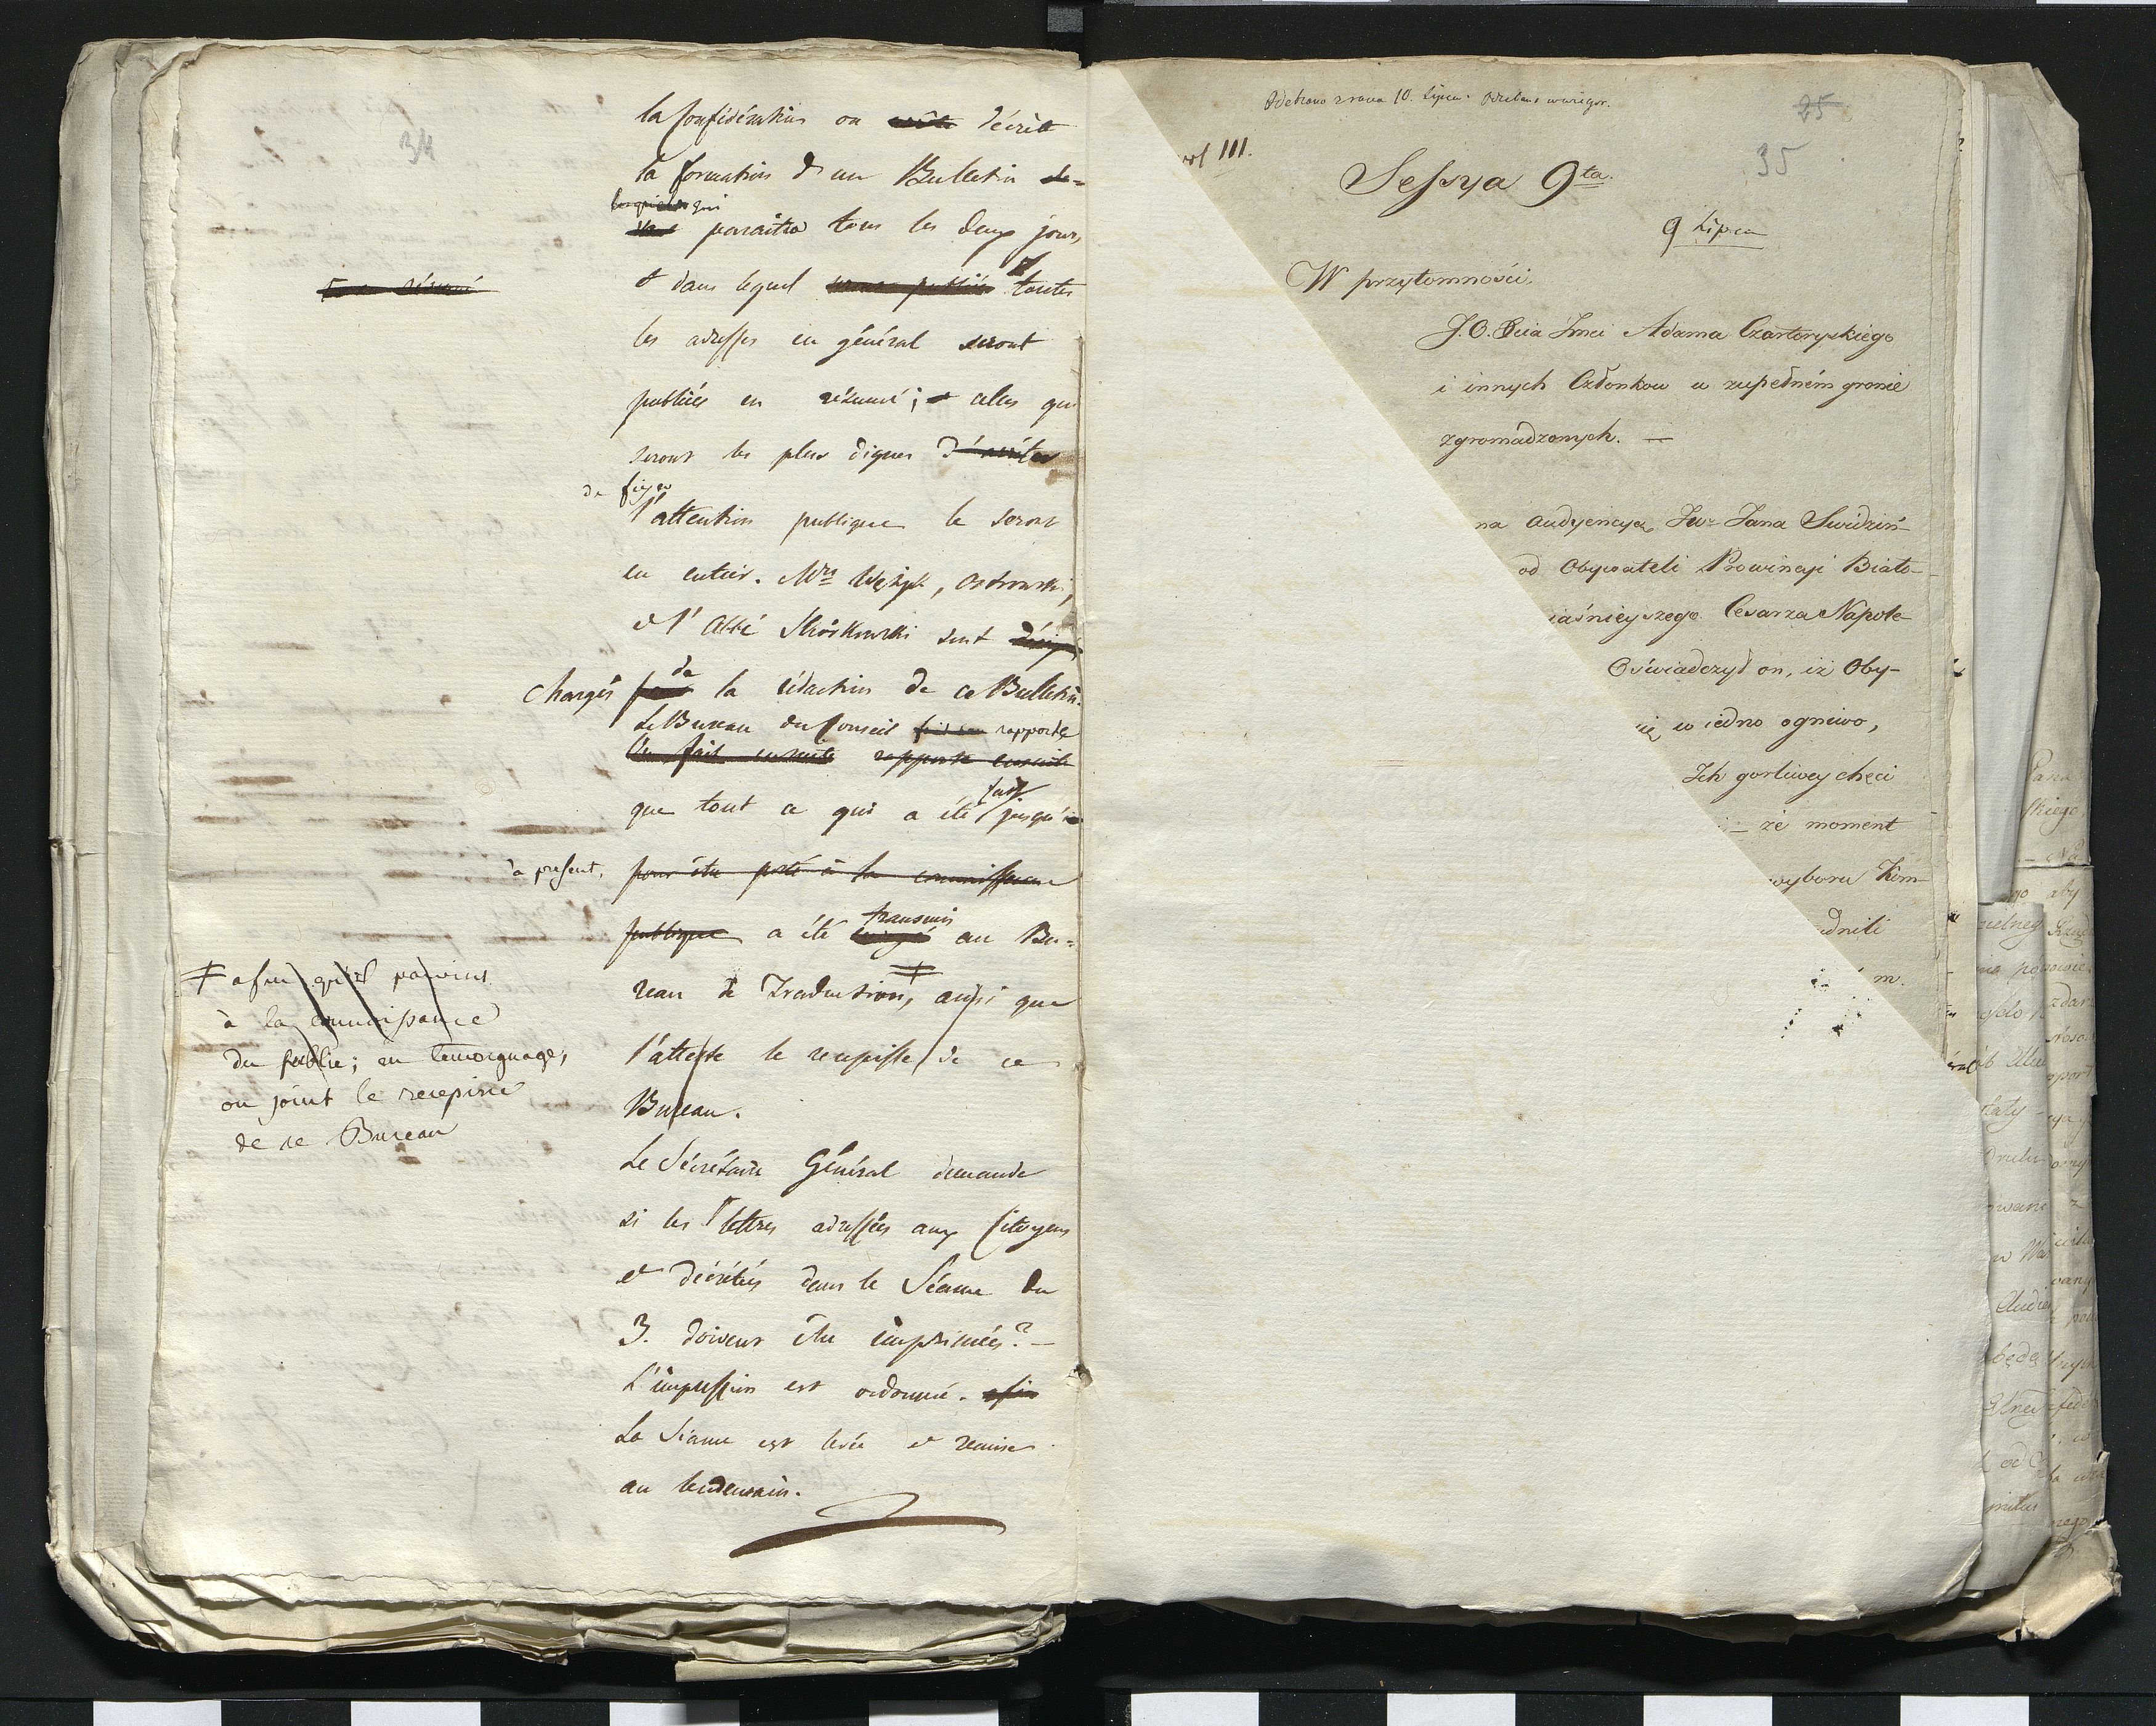 34
la Confédération on décrète
la formation d'un Bulletin
qui
paraitra tous les deux jours
et dans lequel toutes
les adresses en général seront
publiées en résumé; celles qui
seront les plus dignes
de fixer
l'attention publique le seront
en entier. Mrs Wężyk, Ostrowski,
et l'Abbé Skórkowski sont
chargés de la rédaction de ce Bulletin.
Le Bureau du Conseil rapporte
On fait ensuite rapport ensuite
que tout ce qui a été fait jusqu'
à present, pour être porté à la connaissance
publique a été transmis au Bu=
reau de Traduction, ainsi que
l'atteste le recepisse de ce
Bureau.
Le Sécrétaire Général demande
si les lettres adressées aux Citoyens
et décrétées dans la Séance du
3. doivent être imprimées? —
L'impression est ordonné. afin
La Séance est levée et remise
au lendemain.
en résumé
‡ afin qu'il parvint
à la connoissance
du public; en temoignage,
on joint le recepissé
de ce Bureau
Odebrano z rana 10. Lipca.
25
35
III.
Sessya 9ta.
9 Lipca
W przytomności
J.O. Xcia Jmci Adama Czartoryskiego
i innych Członkow w zupełném gronie
zgromadzonych. —
na audyencyą JW Jana Swidziń-
od Obywateli Prowincyi Biało-
iaśnieyszego Cesarza Napole-
Oświadczył on, iż Oby-
ię w iedno ogniwo,
Ich gorliwey chęci
— że moment
wyboru Kom-
dnili
m.